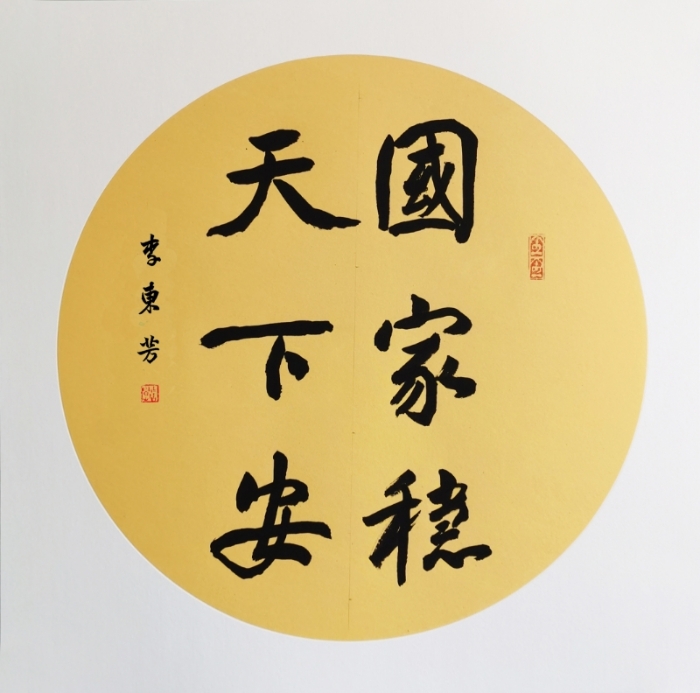 國家穩
天下安
李東芳